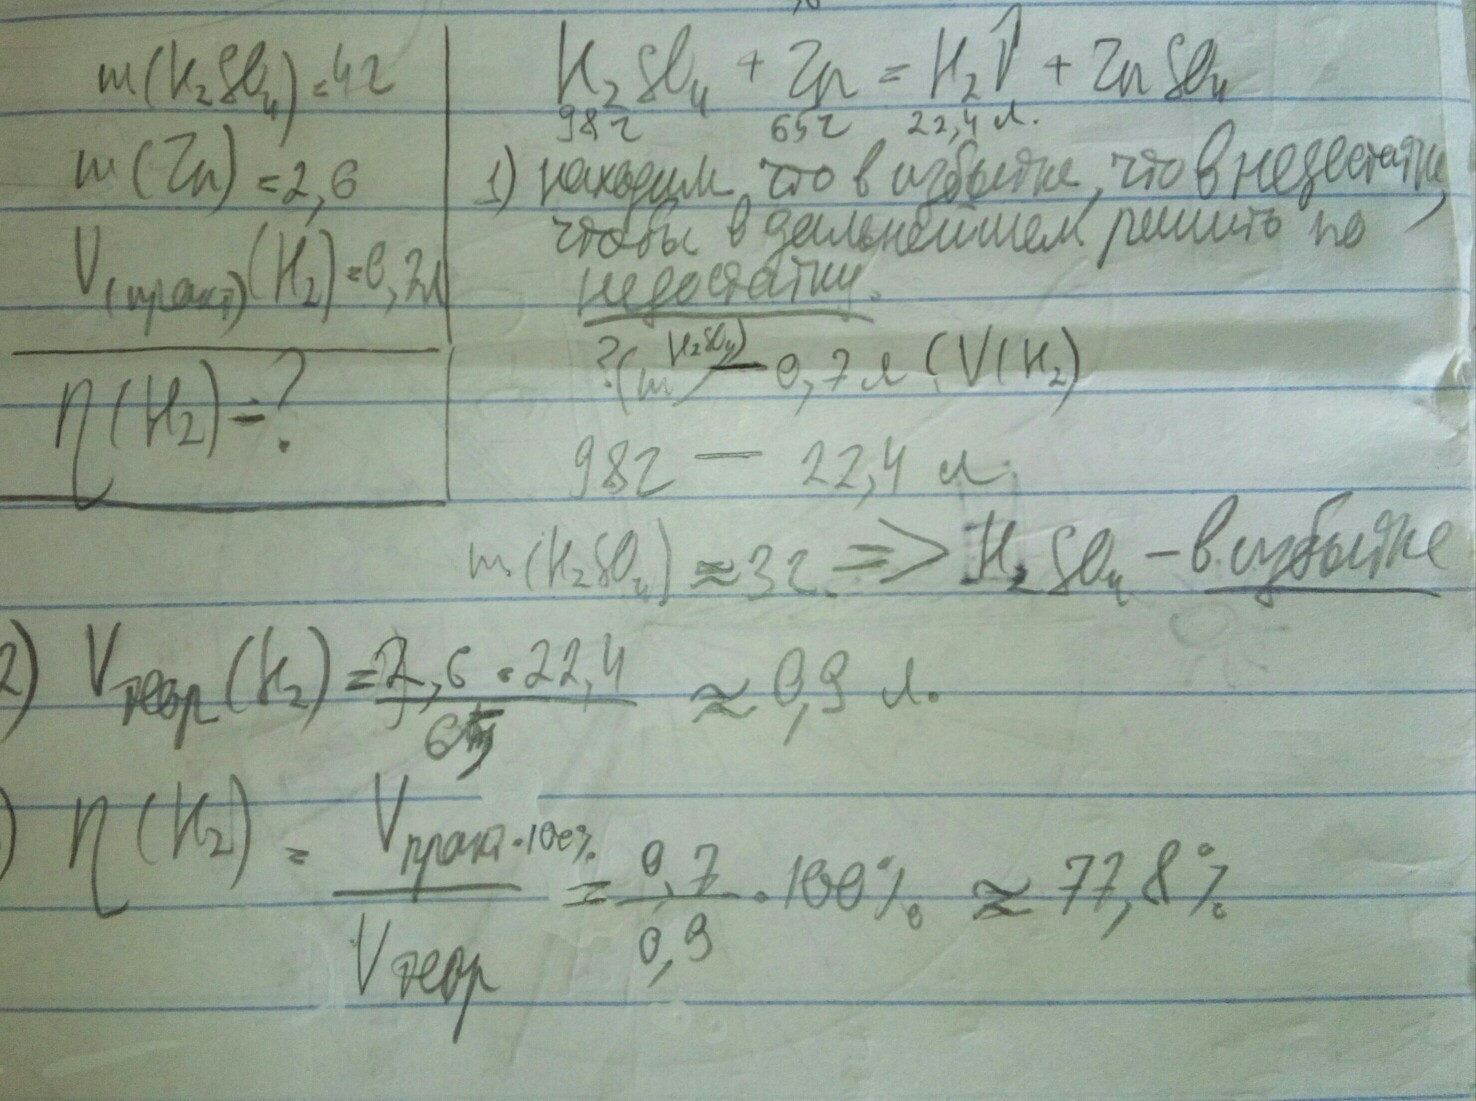 m(H₂SO₄)=4г
m(Zn)=2,6
V(практ)(H₂)=0,7л
η(H₂)=?
H₂SO₄ + Zn = H₂↑ + ZnSO₄
98г 65г 22,4 л.
1) находим, что в избытке, что в недостатке,
чтобы в дальнейшем решить по
недостатку.
?(m H₂SO₄) — 0,7 л (V(H₂)
98г — 22,4 л.
m(H₂SO₄) ≈ 3г. => H₂SO₄ - в избытке
2) Vтеор(H₂) = 2,6 · 22,4 / 65 ≈ 0,9 л.
) η(H₂) = Vпракт·100% / Vтеор = 0,7 / 0,9 · 100% ≈ 77,8%